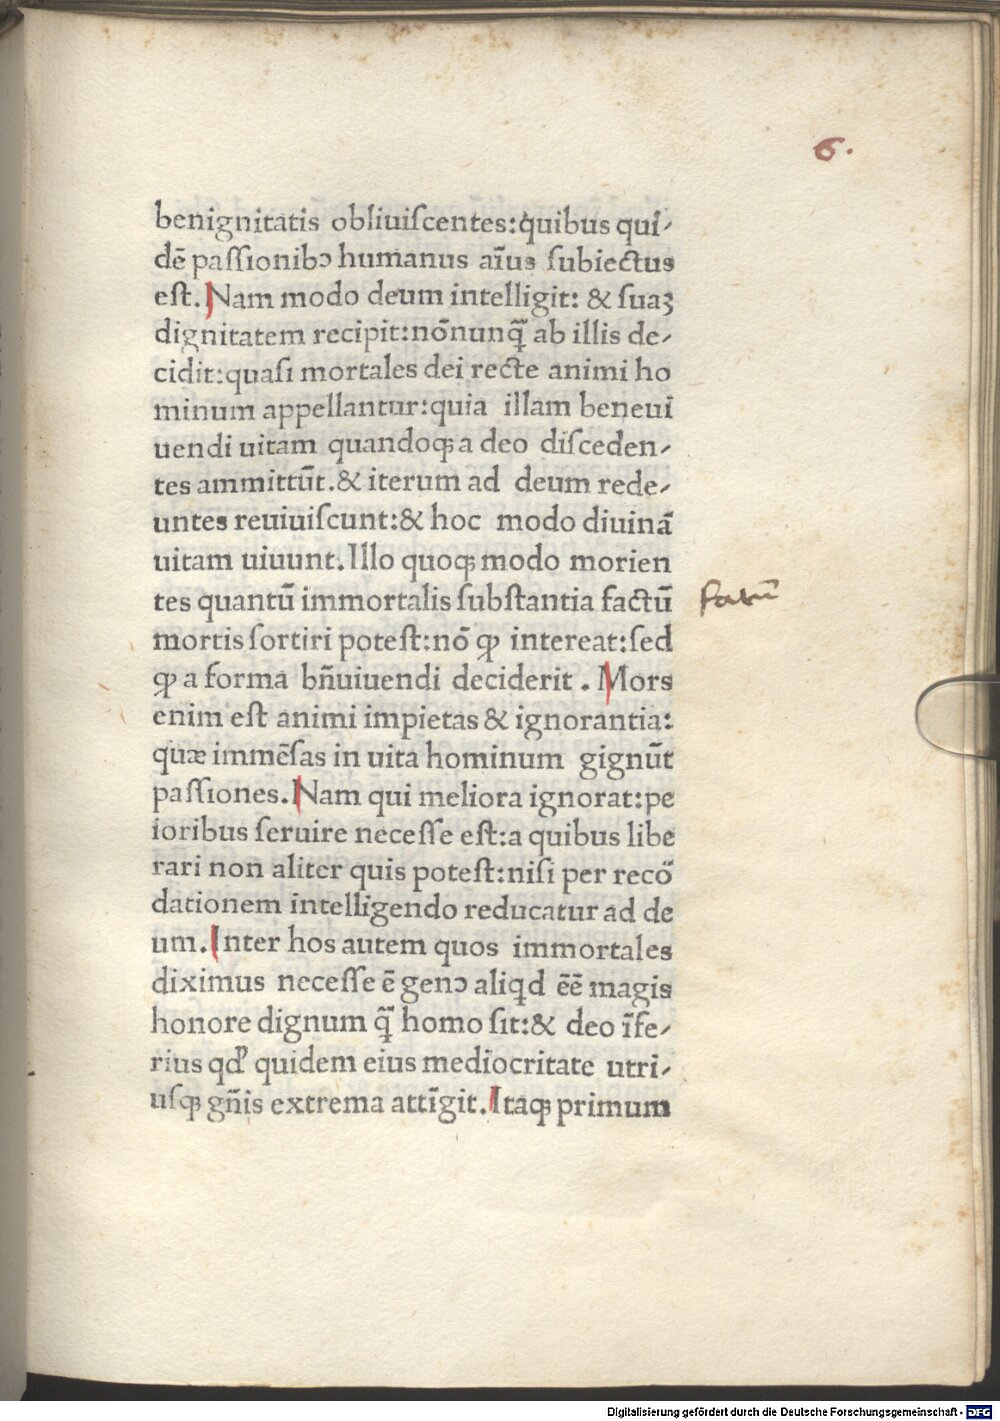 6.
benignitatis obliuiſcentes:quibus quī-
dē paſſionibꝰ humanus aīus ſubiectus
eſt. Nam modo deum intelligit: & ſuaꝫ
dignitatem recipit:nōnunq̄ ab illis de-
cidit:quaſi mortales dei recte animi ho
minum appellantur:quia illam beneui
uendi uitam quandoqꝫ a deo diſceden-
tes ammittūt.& iterum ad deum rede-
untes reuiuiſcunt:& hoc modo diuinā
uitam uiuunt. Illo quoqꝫ modo morien
tes quantū immortalis ſubſtantia factū
fatū
mortis ſortiri poteſt:nō ꝙ intereat:ſed
ꝙ a forma bn̄uiuendi deciderit. Mors
enim eſt animi impietas & ignorantia:
quæ immēſas in uita hominum gignūt
paſſiones. Nam qui meliora ignorat:pe
ioribus ſeruire neceſſe eſt:a quibus libe
rari non aliter quis poteſt:niſi per recō
dationem intelligendo reducatur ad de
um. Inter hos autem quos immortales
diximus neceſſe ē genꝰ aliqd ēē magis
honore dignum q̄ homo ſit:& deo īfe-
rius qđ quidem eius mediocritate utri-
uſqꝫ gn̄is extrema attīgit. Itaqꝫ primum
Digitalisierung gefördert durch die Deutsche Forschungsgemeinschaft - DFG